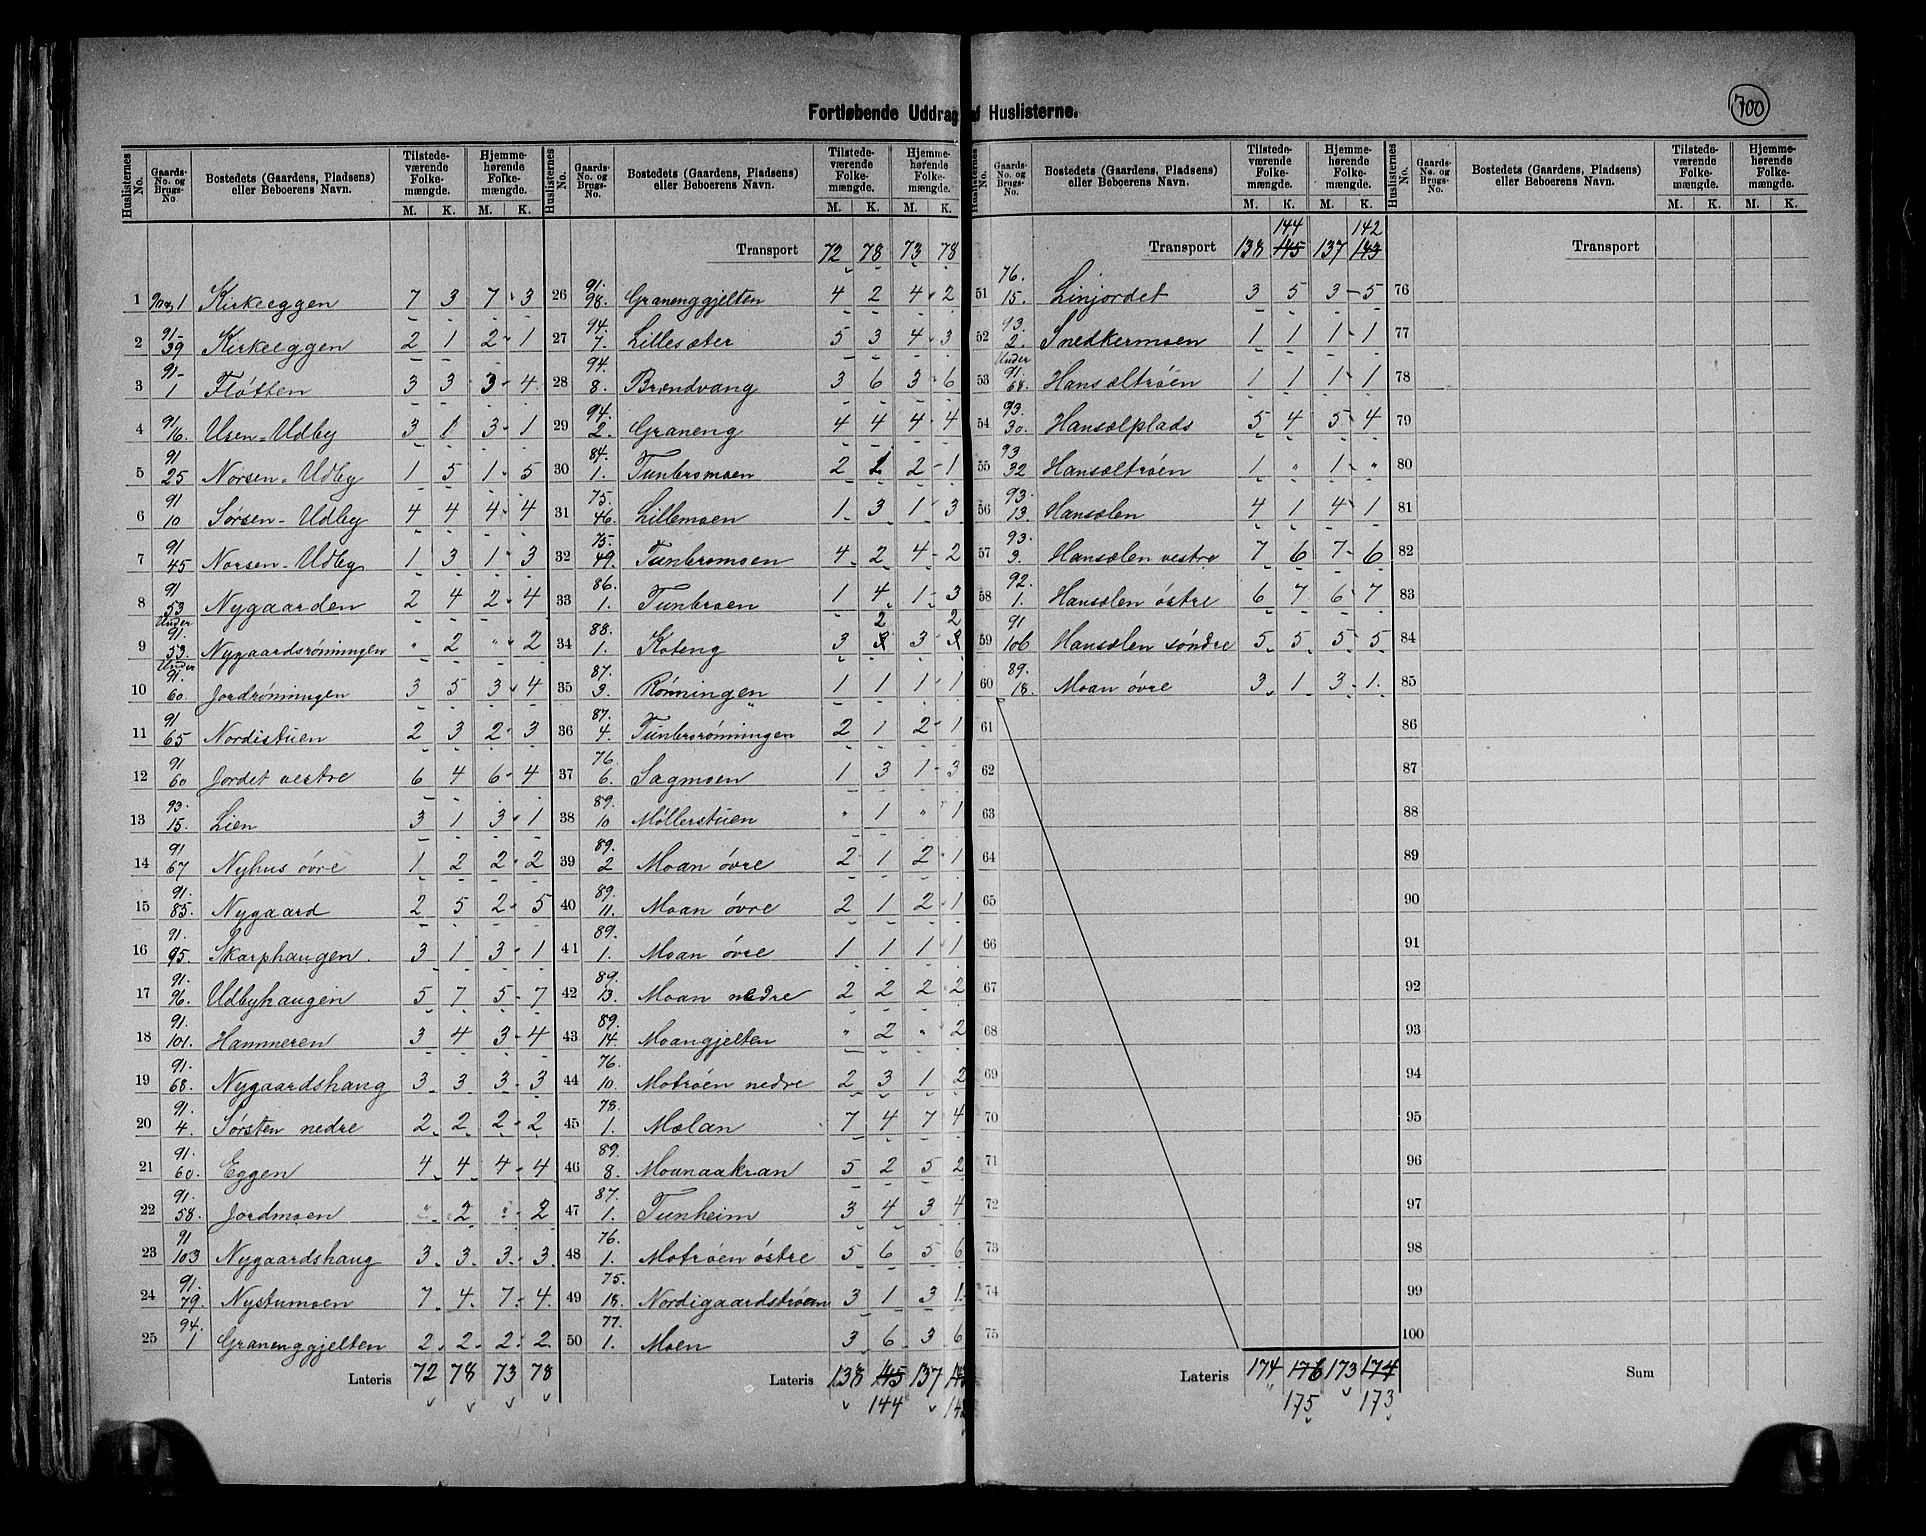 Fortløbende Uddrag af Huslisterne.
700
Huslisternes No. Gaards-No. og Brugs-No Bostedets (Gaardens, Pladsens) eller Beboerens Navn. Tilstedeværende Folkemængde. M. K. Hjemmehørende Folkemængde. M. K.
1 1 Kirkeeggen 7 3 7 3
2 91-39 Kirkeeggen 2 1 2 1
3 91-1 Fløtten 3 3 3 4
4 91 16. Usen-Udby 3 1 3 1
5 91 25 Norsen-Udby 1 5 1 5
6 91 10 Sørsen-Udby 4 4 4 4
7 91 45 Norsen-Udby 1 3 1 3
8 91 53 Nygaarden 2 4 2 4
9 Under 91. 53. Nygaardsrønningen " 2 " 2
10 Under 91. 60. Jordrønningen 3 5 3 4
11 91 65 Nordistuen 2 3 2 3
12 91 60 Jordet vestre 6 4 6 4
13 93. 15. Lien 3 1 3 1
14 91 67 Nyhus övre 1 2 2 2
15 91. 85. Nygaard 2 5 2 5
16 91. 95. Skarphaugen. 3 1 3 1
17 91. 96. Udbyhaugen 5 7 5 7
18 91. 101. Hammeren 3 4 3 4
19 91. 68. Nygaardshaug 3 3 3 3
20 91. 4. Sørsten nedre 2 2 2 2
21 91. 60. Eggen 4 4 4 4
22 91. 58. Jordmoen " 2 " 2
23 91 103 Nygaardshaug 3 3 3 3
24 91. 79. Nystumoen 7 4 7 4
25 94. 1 Granenggjelten 2 2 2 2
Lateris 72 78 73 78
Huslisternes No. Gaards-No. og Brugs-No. Bostedets (Gaardens, Pladsens) eller Beboerens Navn. Tilstedeværende Folkemængde. M. K. Hjemmehørende Folkemængde. M. K.
Transport 72 78 73 78
26 91. 98. Granenggjelten 4 2 4 2
27 94. 7. Lillesæter 5 3 4 3
28 94. 8. Brendvang 3 6 3 6
29 94. 2. Graneng 4 4 4 4
30 84. 1. Tunbromoen 2 2 2 1
31 75. 46. Lillemoen 1 3 1 3
32 75. 49. Tunbromoen 4 2 4 2
33 86. 1. Tunbroen 1 4 1 3
34 88. 1. Koteng 3 3 2 3 3 2
35 87. 3. Rönningen 1 1 1 1
36 87. 4. Tunbrorønningen 2 1 2 1
37 76. 6. Sagmoen 1 3 1 3
38 89. 10 Møllerstuen " 1 " 1
39 89. 2 Moan övre 2 1 2 1
40 89. 11. Moan övre 2 1 2 1
41 89. 1. Moan övre 1 1 1 1
42 89. 13. Moan nedre 2 2 2 2
43 89. 14. Moangjelten " 2 " 2
44 76. 10. Motrøen nedre 2 3 1 2
45 78. 1. Mælan 7 4 7 4
46 89. 8. Moanaakran 5 2 5 2
47 87. 1. Tunheim 3 4 3 4
48 76. 1. Motrøen östre 5 6 5 6
49 75. 18. Nordigaardstrøen 3 1 3 1
50 77. 1. Moen 3 6 3 6
Lateris 138 145 137
144
Huslisternes No. Gaards-No. og Brugs-No. Bostedets (Gaardens, Pladsens) eller Beboerens Navn. Tilstedeværende Folkemængde. M. K. Hjemmehørende Folkemængde. M. K.
144 142
Transport 138 145 137 143
51 76. 15. Linjordet 3 5 3 5
52 93. 2. Snedkermoen 1 1 1 1
53 Under 91. 68. Hansæltrøen 1 1 1 1
54 93. 30. Hansælplads 5 4 5 4
55 93 32 Hansæltrøen 1 " 1 "
56 93. 13. Hansælen 4 1 4 1
57 93. 3. Hansælen vestre 7 6 7 6
58 92. 1. Hansælen östre 6 7 6 7
59 91 106 Hansælen söndre 5 5 5 5
60 89. 18. Moan övre 3 1 3 1
61
62
63
64
65
66
67
68
69
70
71
72
73
74
75
Lateris 174 176 173 174
175 173
Huslisternes No. Gaards-No. og Brugs-No. Bostedets (Gaardens, Pladsens) eller Beboerens Navn. Tilstedeværende Folkemængde. M. K. Hjemmehørende Folkemængde. M. K.
Transport
76
77
78
79
80
81
82
83
84
85
86
87
88
89
90
91
92
93
94
95
96
97
98
99
100
Sum